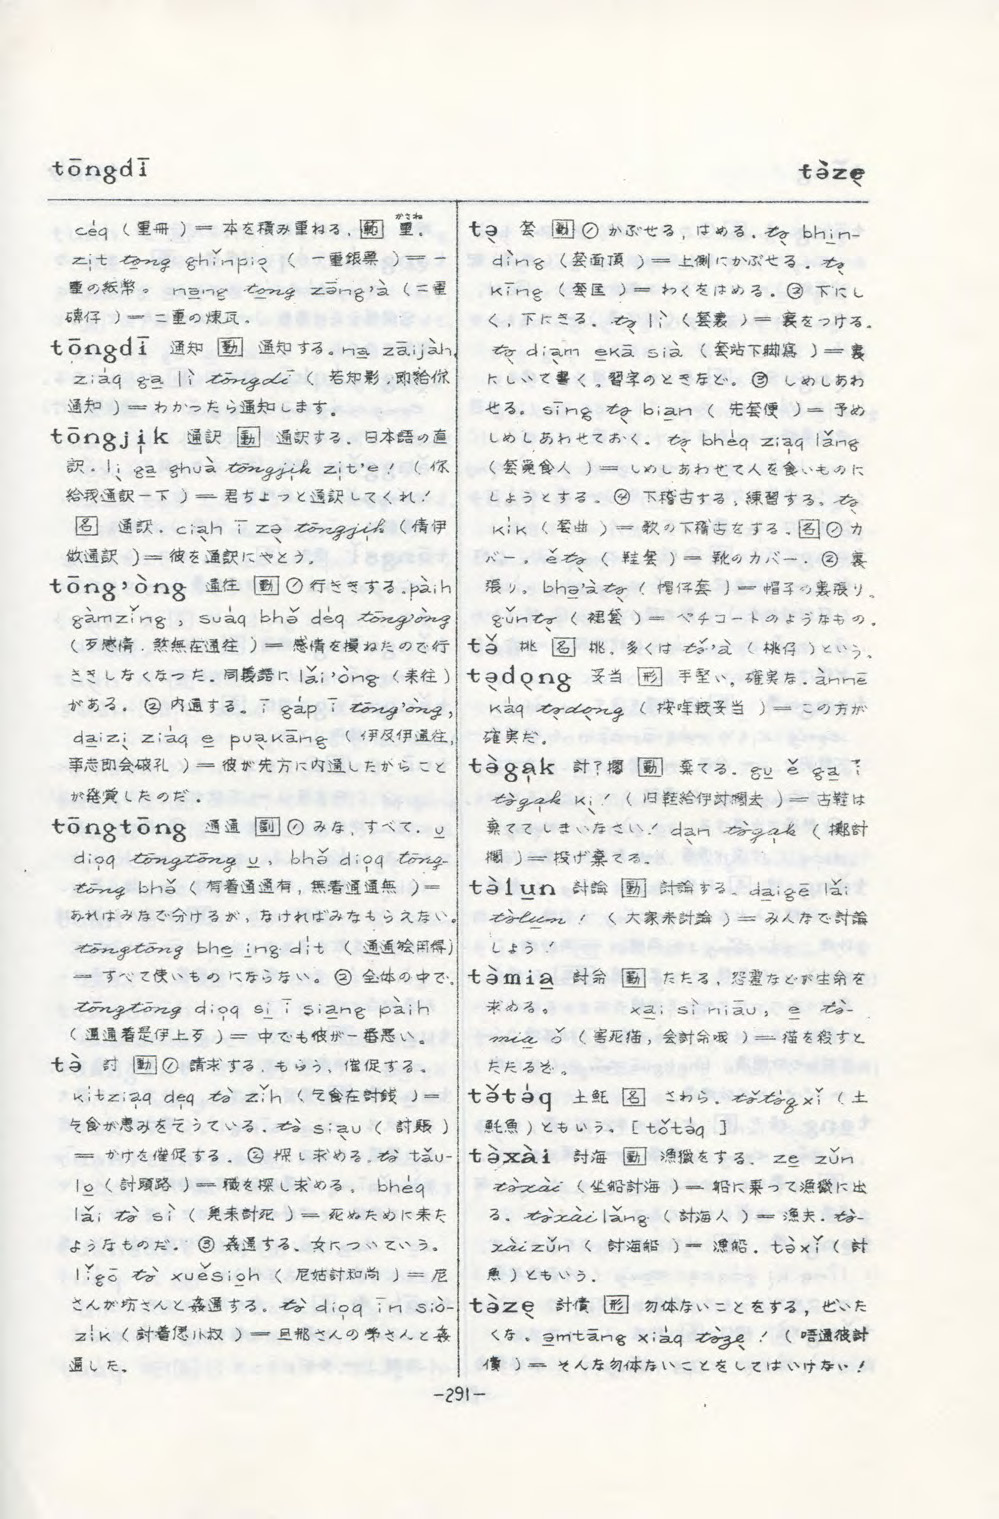 tōngdī
tə̀zẹ
céq ( 重冊 ) = 本を積み重ねる. 範 重.
かさね
zịt tong ghǐnpiọ ( 一重銀票 ) = 一
重の紙幣。 nạng tong zāng'à ( 二重
磚仔 ) = 二重の煉瓦.
tōngdī 通知 動 通知する。na zāijàh,
ziáq gạ lì tōngdī ( 若知影,即給你
通知 ) = わかったら通知します。
tōngjịk 通訳 動 通訳する. 日本語の直
訳. lì gạ ghuà tōngjịk zịt'e! ( 你
給我通訳一下 ) = 君ちょっと通訳してくれ!
名 通訳. ciàh ī zə̣ tōngjịk ( 倩伊
做通訳 ) = 彼を通訳にやとう。
tōng'òng 通往 動 ① 行ききする. pàih
gàmzíng, suáq bhə̌ déq tōng'òng
( 歹感情. 煞無在通往 ) = 感情を損ねたので行
ききしなくなった. 同義語に lǎi'òng ( 来往 )
がある。 ② 内通する。 ī gáp ī tōng'òng,
dạizị ziáq ẹ puạkāng ( 伊及伊通往,
事志即会破孔 ) = 彼が先方に内通したからこと
が発覚したのだ.
tōngtōng 通通 副 ① みな, すべて. ụ
diọq tōngtōng ụ, bhə̌ diọq tōng-
tōng bhə̌ ( 有着通通有, 無着通通無 ) =
あればみなで分けるが, なければみなもらえない。
tōngtōng bhẹ ịng dít ( 通通𣍐用得 )
= すべて使いものにならない。 ② 全体の中で.
tōngtōng diọq sị ī siạng pàih
( 通通着是伊上歹 ) = 中でも彼が一番悪い。
tə̀ 討 動 ① 請求する. もらう, 催促する。
kítziạq déq tə̀ zǐh ( 乞食在討銭 ) =
乞食が恵みをそうている. tə̀ siạu ( 討賬 )
= かけを催促する. ② 探し求める. tə̀ tǎu-
lọ ( 討頭路 ) = 職を探し求める。 bhéq
lǎi tə̀ sì ( 卜来討死 ) = 死ぬために来た
ようなものだ. ③ 姦通する. 女についていう。
lǐgō tə̀ xuěsioh ( 尼姑討和尚 ) = 尼
さんが坊さんと姦通する。 tə̀ diọq īn siò-
zík ( 討着怹小叔 ) = 旦那さんの弟さんと姦
通した。
tə̣ 套 動 ① かぶせる, はめる. tə̣ bhịn-
dìng ( 套面頂 ) = 上側にかぶせる. tə̣
kīng ( 套匡 ) = わくをはめる. ② 下にし
く, 下にきる. tə̣ lì ( 套裏 ) = 裏をつける。
tə̣ diạm ẹkā sià ( 套站下脚寫 ) = 裏
にしいて書く. 習字のときなど。 ③ しめしあわ
せる。 sīng tə̣ biạn ( 先套便 ) = 予め
しめしあわせておく. tə̣ bhéq ziạq lǎng
( 套卜食人 ) = しめしあわせて人を食いものに
しようとする. ④ 下稽古する, 練習する. tə̣
kík ( 套曲 ) = 歌の下稽古をする. 名 ① カ
バー. ětə̣ ( 鞋套 ) = 靴のカバー. ② 裏
張り. bhə̣'àtə̣ ( 帽仔套 ) = 帽子の裏張り。
gǔntə̣ ( 裙套 ) = ペチコートのようなもの.
tə̌ 桃 名 桃. 多くは tə̌'à ( 桃仔 ) という。
tə̣dọng 妥当 形 手堅い, 確実な. ànnē
káq tə̣dọng ( 按哖較妥当 ) = この方が
確実だ.
tə̀gạk 討?擱 動 棄てる. gụ ě gạ ī
tə̀gạk kị! ( 旧鞋給伊討擱去 ) = 古鞋は
棄ててしまいなさい! dạn tə̀gạk ( 擲討
擱 ) = 投げ棄てる.
tə̀lụn 討論 動 討論する. dạigē lǎi
tə̀lụn! ( 大家来討論 ) = みんなで討論
しよう!
tə̀miạ 討命 動 たたる, 怨霊などが生命を
求める。 xại sì niāu, ẹ tə̀-
miạ ǒ ( 害死猫, 会討命哦 ) = 猫を殺すと
たたるぞ.
tə̌tə́q 土魠 名 さわら. tə̌tə́qxǐ ( 土
魠魚 ) ともいう。 [ tǒtə́q ]
tə̀xài 討海 動 漁獵をする. zẹ zǔn
tə̀xài ( 坐船討海 ) = 船に乗って漁獵に出
る. tə̀xàilǎng ( 討海人 ) = 漁夫. tə̀-
xàizǔn ( 討海船 ) = 漁船. tə̀xǐ ( 討
魚 ) ともいう.
tə̀zẹ 討債 形 勿体ないことをする, ぜいた
くな. ạmtāng xiáq tə̀zẹ! ( 唔通彼討
債 ) = そんな勿体ないことをしてはいけない!
-291-